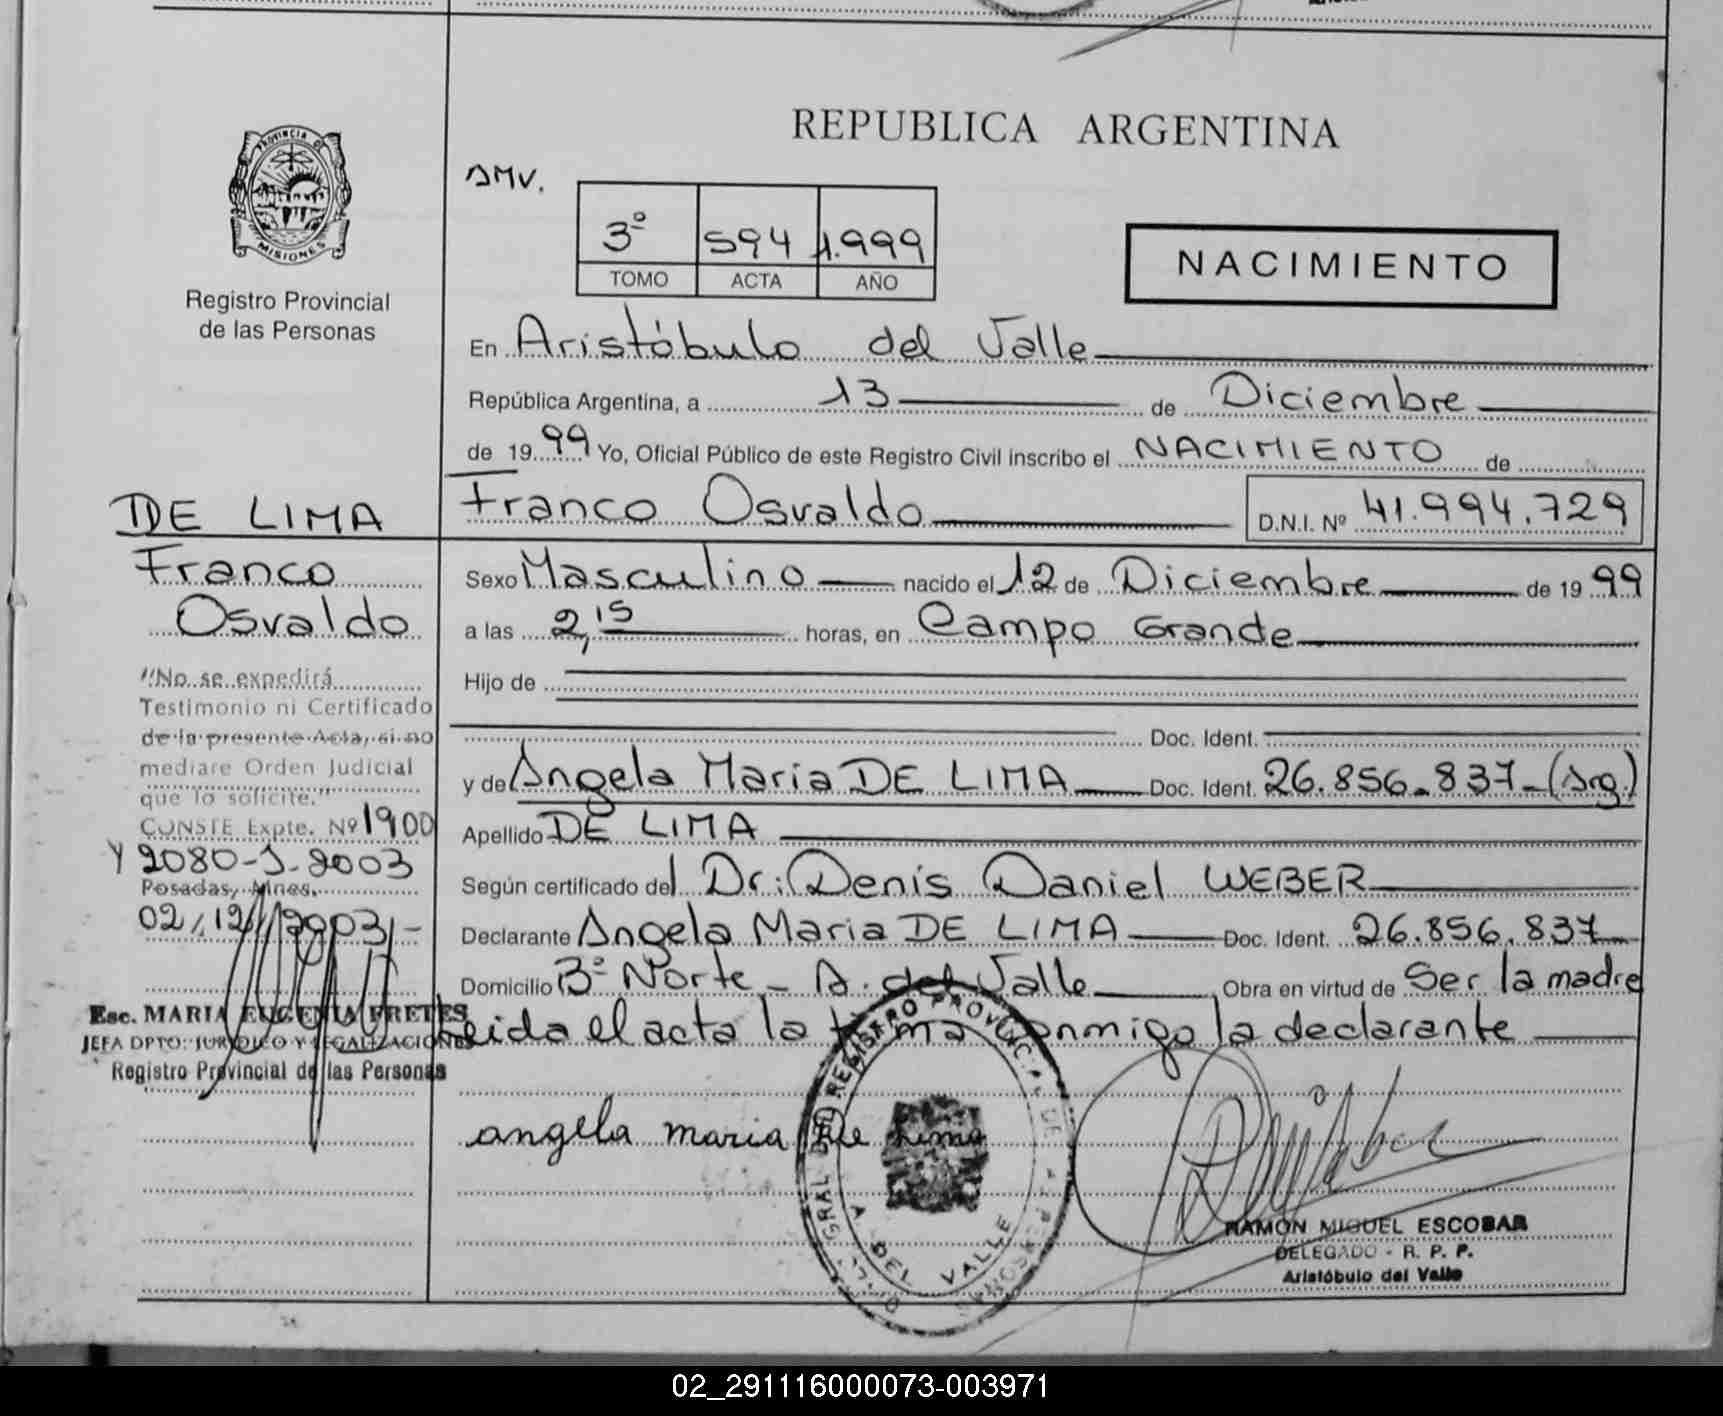 REPUBLICA ARGENTINA
PROVINCIA DE
MISIONES
Registro Provincial
de las Personas
AMV.
3º 594 1.999
TOMO ACTA AÑO
NACIMIENTO
En Aristóbulo del Valle
República Argentina, a 13 de Diciembre
de 1999 Yo, Oficial Público de este Registro Civil inscribo el NACIMIENTO de
Franco Osvaldo D.N.I. Nº 41.994.729
Sexo Masculino nacido el 12 de Diciembre de 1999
a las 2,15 horas, en Campo Grande
Hijo de
Doc. Ident.
y de Angela Maria DE LIMA Doc. Ident. 26.856.837-(Arg)
Apellido DE LIMA
Según certificado del Dr: Denis Daniel WEBER
Declarante Angela Maria DE LIMA Doc. Ident. 26.856.837
Domicilio Bº Norte - A. del Valle Obra en virtud de Ser la madre
Leida el acta la firma conmigo la declarante
angela maria De Lima
DE LIMA
Franco
Osvaldo
"No se expedirá
Testimonio ni Certificado
de la presente Acta, si no
mediare Orden Judicial
que lo solicite."
CONSTE Expte. Nº 1900
Y 2080-J-2003
Posadas, Mnes.
02/12/2003/-
Esc. MARIA EUGENIA FRETES
JEFA DPTO: JURIDICO Y LEGALIZACIONES
Registro Provincial de las Personas
REGISTRO PROVINCIAL DE LAS PERSONAS
A. DEL VALLE
RAMON MIGUEL ESCOBAR
DELEGADO - R. P. P.
Aristóbulo del Valle
02_291116000073-003971